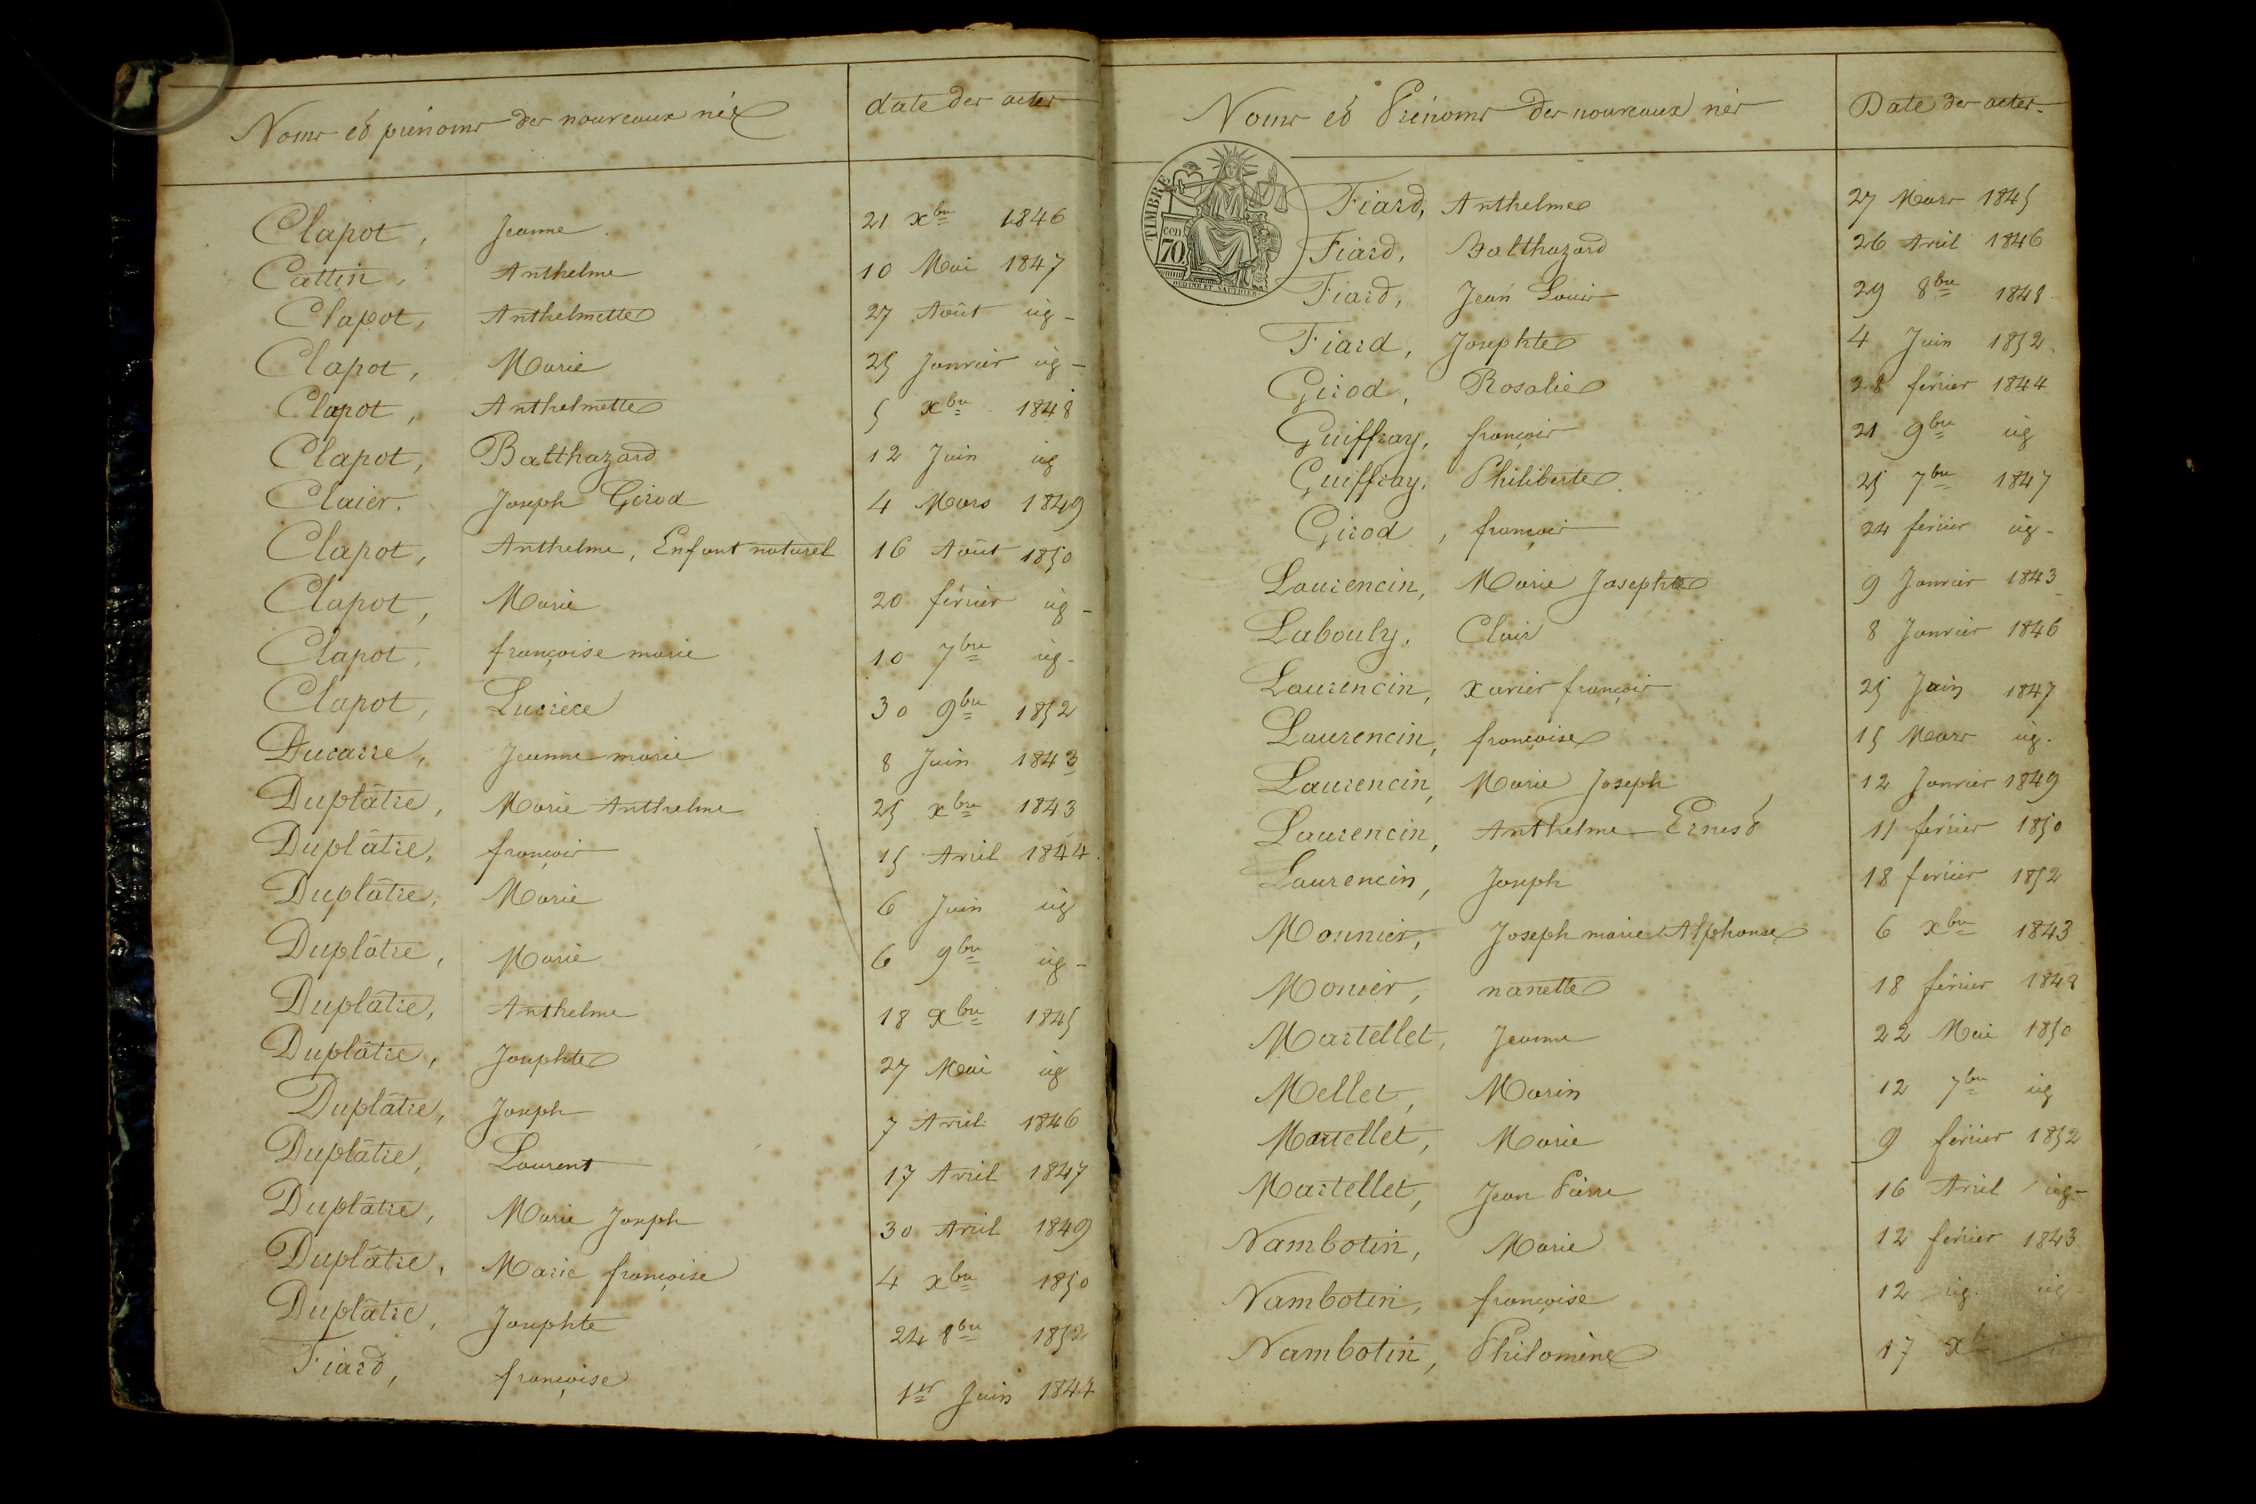 Noms et prénoms des nouveaux nés date des actes
Clapot, Jeanne 21 xbre 1846
Cattin, Anthelme 10 Mai 1847
Clapot, Anthelmette 27 Août id
Clapot, Marie 25 Janvier id
Clapot, Anthelmette 5 xbre 1848
Clapot, Balthazard 12 Juin id
Claier. Joseph Girod 4 Mars 1849
Clapot, Anthelme, Enfant naturel 16 Août 1850
Clapot, Marie 20 février id
Clapot, françoise marie 10 7bre id
Clapot, Lucrèce 30 9bre 1852
Ducarre, Jeanne marie 8 Juin 1843
Duplâtre, Marie Anthelme 25 xbre 1843
Duplâtre, françois 15 Avril 1844
Duplâtre, Marie 6 Juin id
Duplâtre, Marie 6 9bre id
Duplâtre, Anthelme 18 xbre 1845
Duplâtre, Josephte 27 Mai id
Duplâtre, Joseph 7 Avril 1846
Duplâtre, Laurent 17 Avril 1847
Duplâtre, Marie Joseph 30 Avril 1849
Duplâtre, Marie françoise 4 xbre 1850
Duplâtre, Josephte 24 8bre 1852
Fiard, françoise 1er Juin 1844
Noms et Prénoms des nouveaux nés Date des actes
TIMBRE
70
Fiard, Anthelme 27 Mars 1845
Fiard, Balthazard 26 Avril 1846
Fiard, Jean Louis 29 8bre 1848
Fiard, Josephte 4 Juin 1852
Girod, Rosalie 28 février 1844
Guiffray, françois 21 9bre id
Guiffray, Philiberte 25 7bre 1847
Girod, françois 24 février id
Laurencin, Marie Josephte 9 Janvier 1843
Labouly, Clair 8 Janvier 1846
Laurencin, xavier françois 25 Juin 1847
Laurencin, françoise 15 Mars id
Laurencin, Marie Joseph 12 Janvier 1849
Laurencin, Anthelme Ernest 11 février 1850
Laurencin, Joseph 18 février 1852
Mounier, Joseph marie Alphonse 6 xbre 1843
Monier, nanette 18 février 1848
Martellet, Jeanne 22 Mai 1850
Mellet, Marin 12 7bre id
Martellet, Marie 9 février 1852
Martellet, Jean Pierre 16 Avril id
Nambotin, Marie 12 février 1843
Nambotin, françoise 12 id. id
Nambotin, Philomène 17 xb